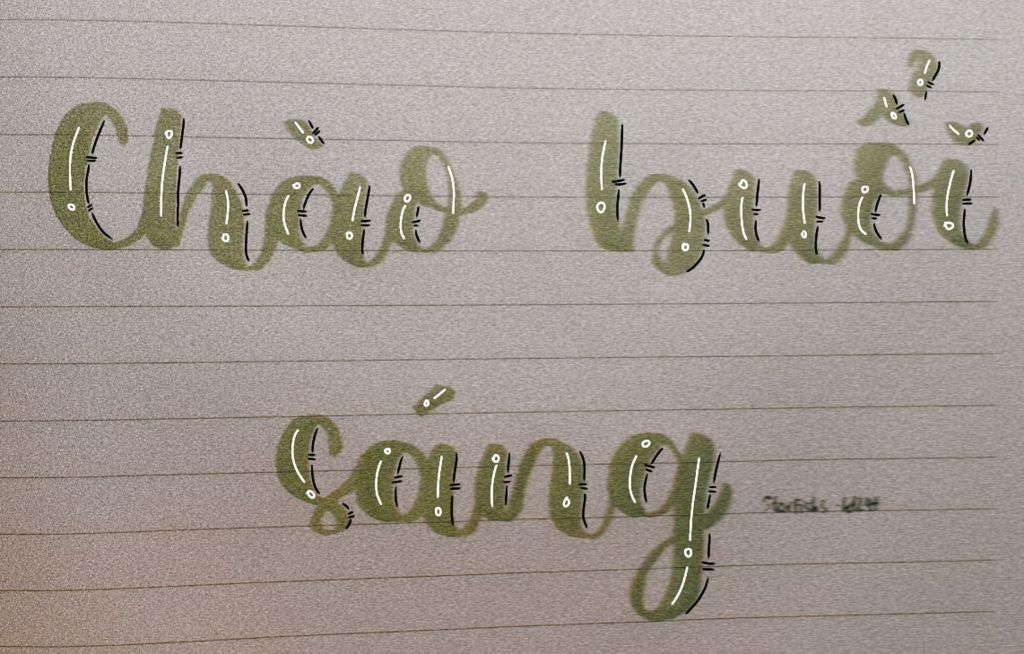 Chào buổi
sáng